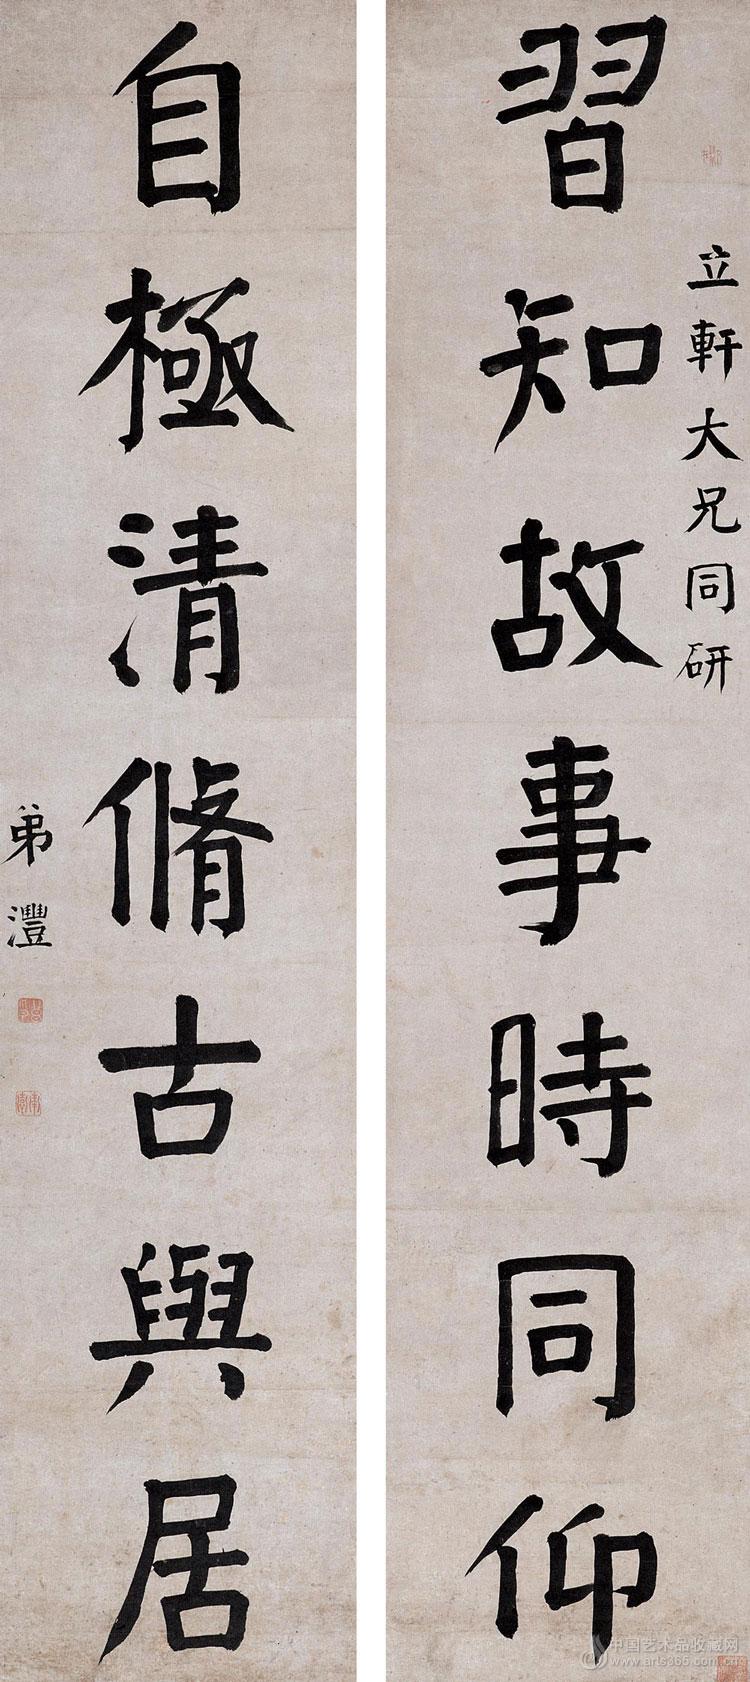 立軒大兄同研
習知故事時同仰
自極清脩古與居
弟灃
中国艺术品收藏网
www.arts365.com.cn